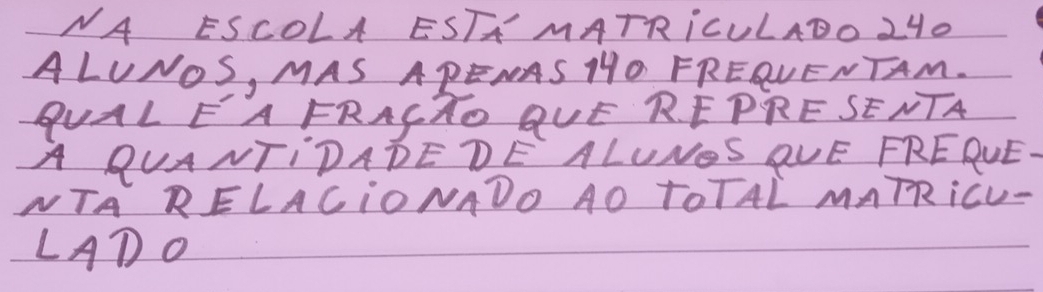 NA ESCOLA ESTÁ MATRICULADO 240
ALUNOS, MAS APENAS 140 FREQUENTAM.
QUAL É A FRAÇÃO QUE REPRESENTA
A QUANTIDADE DE ALUNOS QUE FREQUE-
NTA RELACIONADO AO TOTAL MATRICU-
LADO